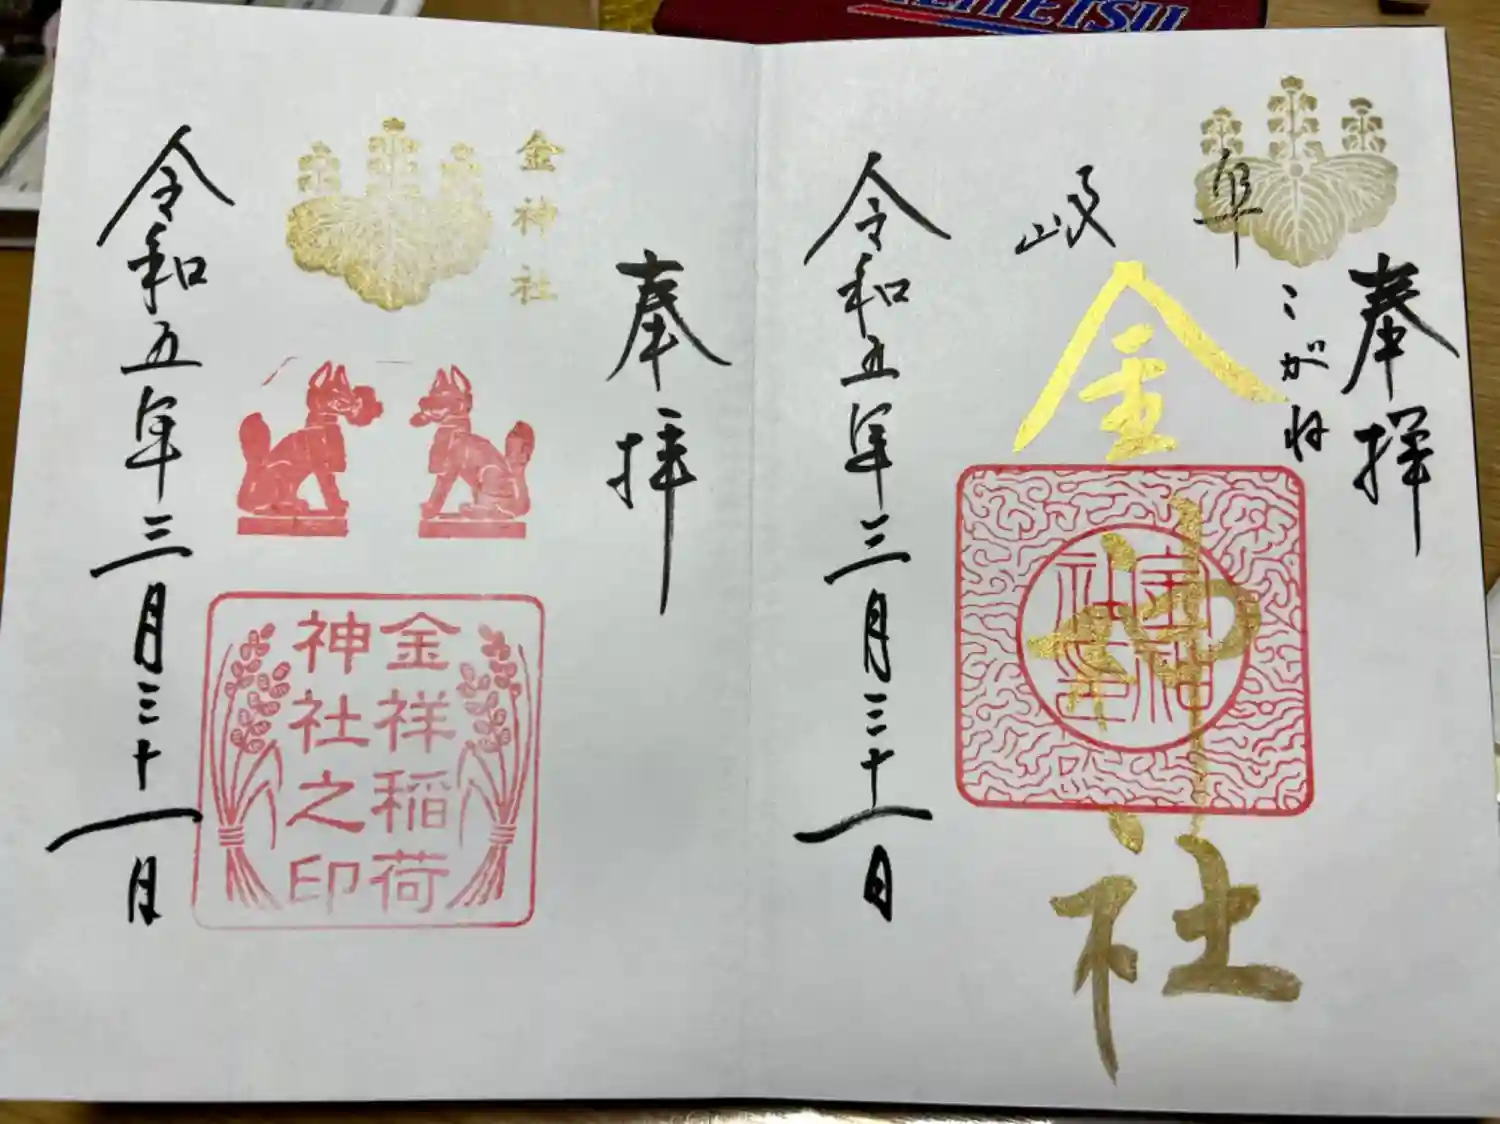 奉拝
岐阜
こがね
金神社
令和五年三月三十一日
奉拝
金神社
金祥稲荷
神社之印
令和五年三月三十一日